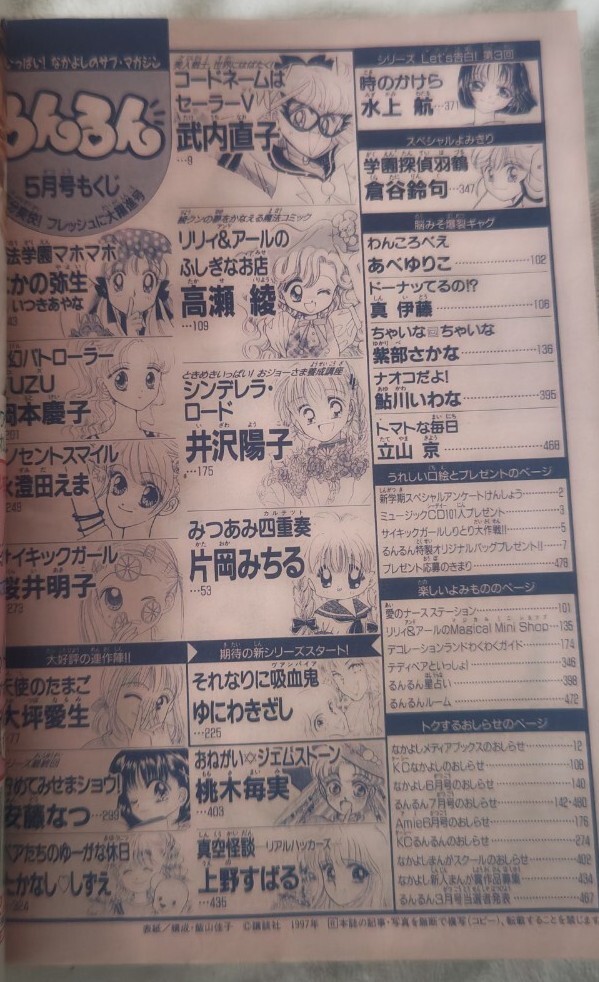 いっぱい！ なかよしのサブ・マガジン
るんるん
5月号もくじ
フレッシュに大前進号
法学園マホマホ
かの弥生
いつきあやな
幻パトローラー
YUZU
岡本慶子
ノセントスマイル
水澄田えま
249
サイキックガール
桜井明子
273
大好評の連作陣!!
天使のたまご
大坪愛生
シリーズ最終回
せてみせまショウ！
安藤なつ…299
ベアたちのゆーがな休日
たかなし♡しずえ
324
美人戦士、世界にはばたく！
コードネームは
セーラーV
武内直子
…9
リリィ&アールの
ふしぎなお店
高瀬 綾
…109
ときめきいっぱい！おジョーさま養成講座
シンデレラ・
ロード
井沢陽子
…175
みつあみ四重奏
カルテット
片岡みちる
…53
期待の新シリーズスタート！
それなりに吸血鬼
ヴァンパイア
ゆにわきざし
…225
おねがい☆ジェムストーン
桃木毎実
…403
真空怪談 ―リアルハッカーズ
上野すばる
…435
シリーズ Let's告白！ 第3回
時のかけら
水上 航…371
スペシャルよみきり
学園探偵羽鶴
倉谷鈴句…347
脳みそ爆裂ギャグ
わんころべえ
あべゆりこ…102
ドーナッてるの!?
真 伊藤…106
ちゃいな ちゃいな
紫部さかな…136
ナオコだよ！
鮎川いわな…395
トマトな毎日
立山 京…468
うれしい口絵とプレゼントのページ
新学期スペシャルアンケートけんしょう…2
ミュージックCD101人プレゼント…3
サイキックガールしりとり大作戦!!…5
るんるん特製オリジナルバッグプレゼント!!…7
プレゼント応募のきまり…478
楽しいよみもののページ
愛のナースステーション…101
リリィ&アールのMagical Mini Shop…135
デコレーションランドわくわくガイド…174
テディベアといっしょ！…346
るんるん星占い…398
るんるんルーム…472
トクするおしらせのページ
なかよしメディアブックスのおしらせ…12
KCなかよしのおしらせ…108
なかよし6月号のおしらせ…140
るんるん7月号のおしらせ…142・480
Amie6月号のおしらせ…176
KCるんるんのおしらせ…274
なかよしまんがスクールのおしらせ…402
なかよし新人まんが賞作品募集…434
るんるん3月号当選者発表…467
表紙／構成・飯山佳子 ©講談社 1997年 本誌の記事・写真を無断で複写（コピー）、転載することを禁じます